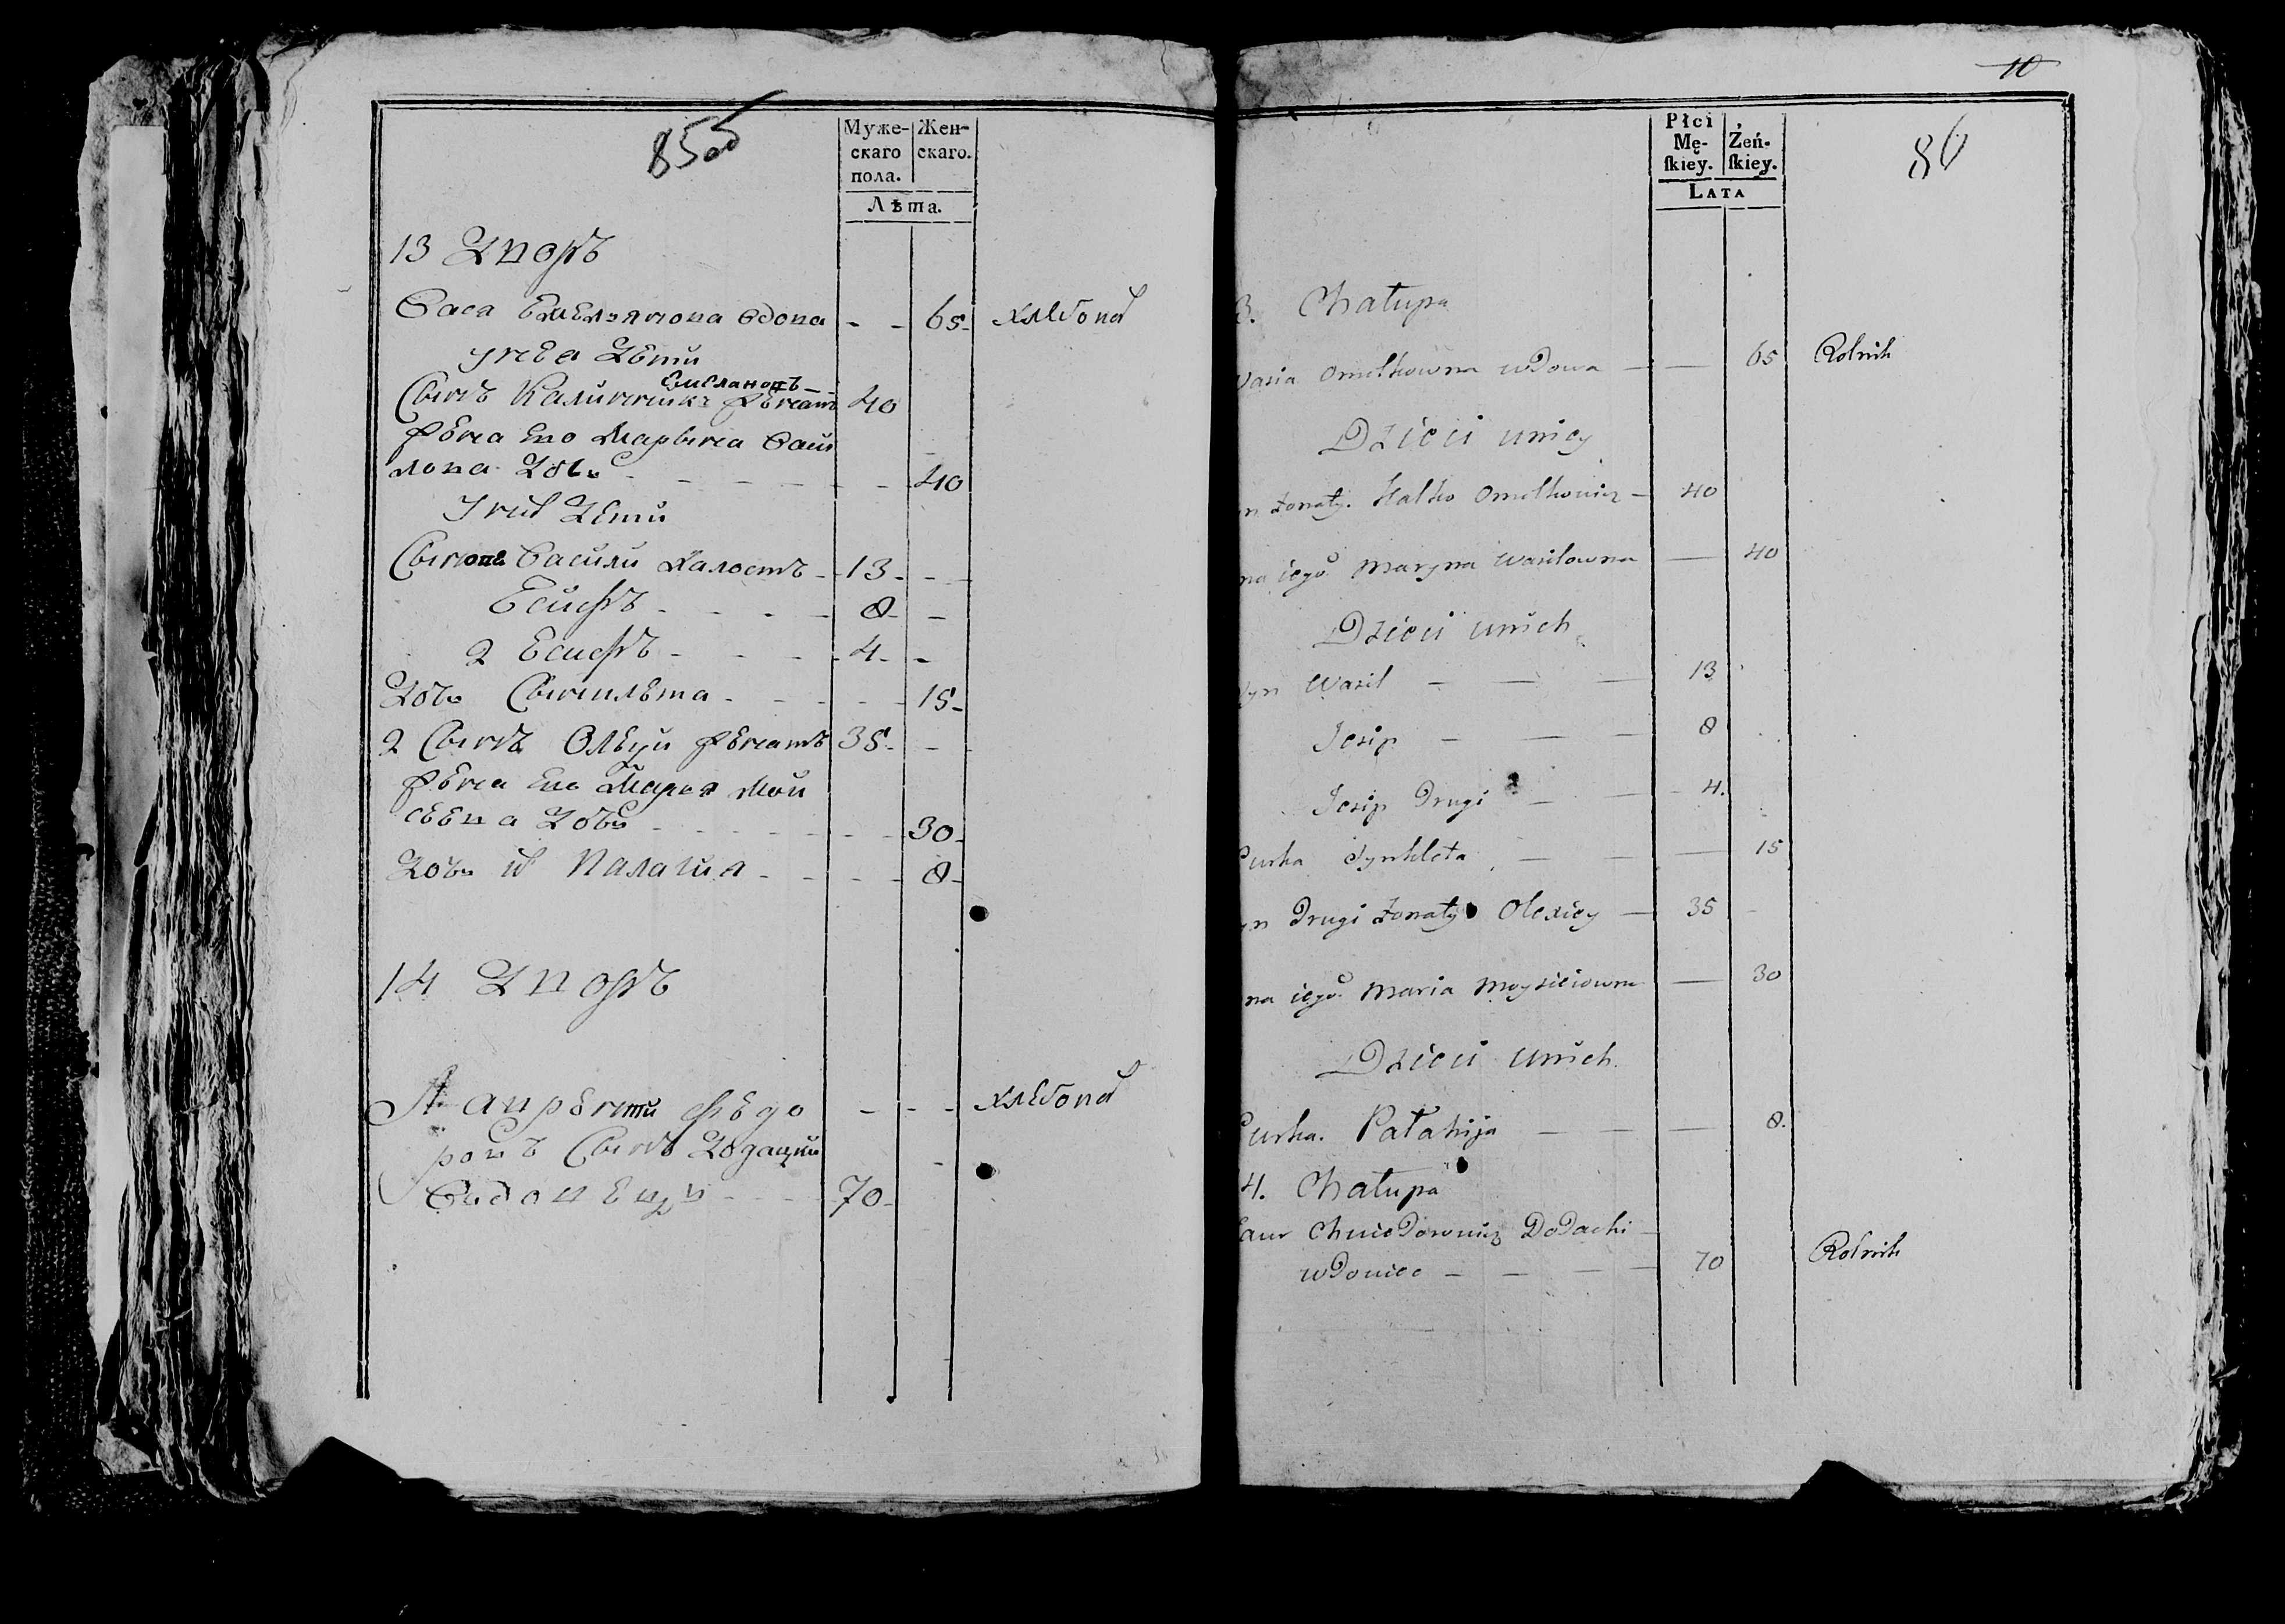 85об
Муже-
скаго
пола.
Жен-
скаго.
Лѣта.
13 Дворъ
Вася Емельянова вдова - - 65 хлѣбопа
у нея дѣти
Емелановъ
Сынъ Калинникъ женатъ 40
жена ево Марына Васи
лова дочь - - - 40
у них дѣти
Сыновя Васили халостъ - 13 - -
Есифъ - - - 8 - -
2 Есифъ - - - 4 - -
дочь Сынклѣта - - - 15
2 Сынъ Олѣѯи женатъ 35 - -
жена ево Маря Мои
сеева дочь - - - 30
дочь их Палагия - - - 8
14 Дворъ
Лавренти Федо - - - хлѣбопа
ровъ Сынъ Додацки
вдовецъ - - - 70
10
Płci
Mę-
ſkiey.
Żeń-
ſkiey.
LATA
86
3. Chałupa
Wasia Omelkowna wdowa — — 65 Rolnik
Dzieci u niey
n żonaty. Halko Omelkowicz — 40
na iego Maryna Wasilowna — 40
Dzieci u nich
yn Wasil — — — 13
Jesip — — — 8
Jesip Drugi — — 4.
Curka Synkleta — — — 15
yn Drugi żonaty Olexiey — 35
na iego Maria Moysieiowna — 30
Dzieci u nich
Curka. Pałahija — — — 8.
4. Chałupa
Ławr Chwiedorowicz Dodacki —
wdowiec — — — — 70 Rolnik